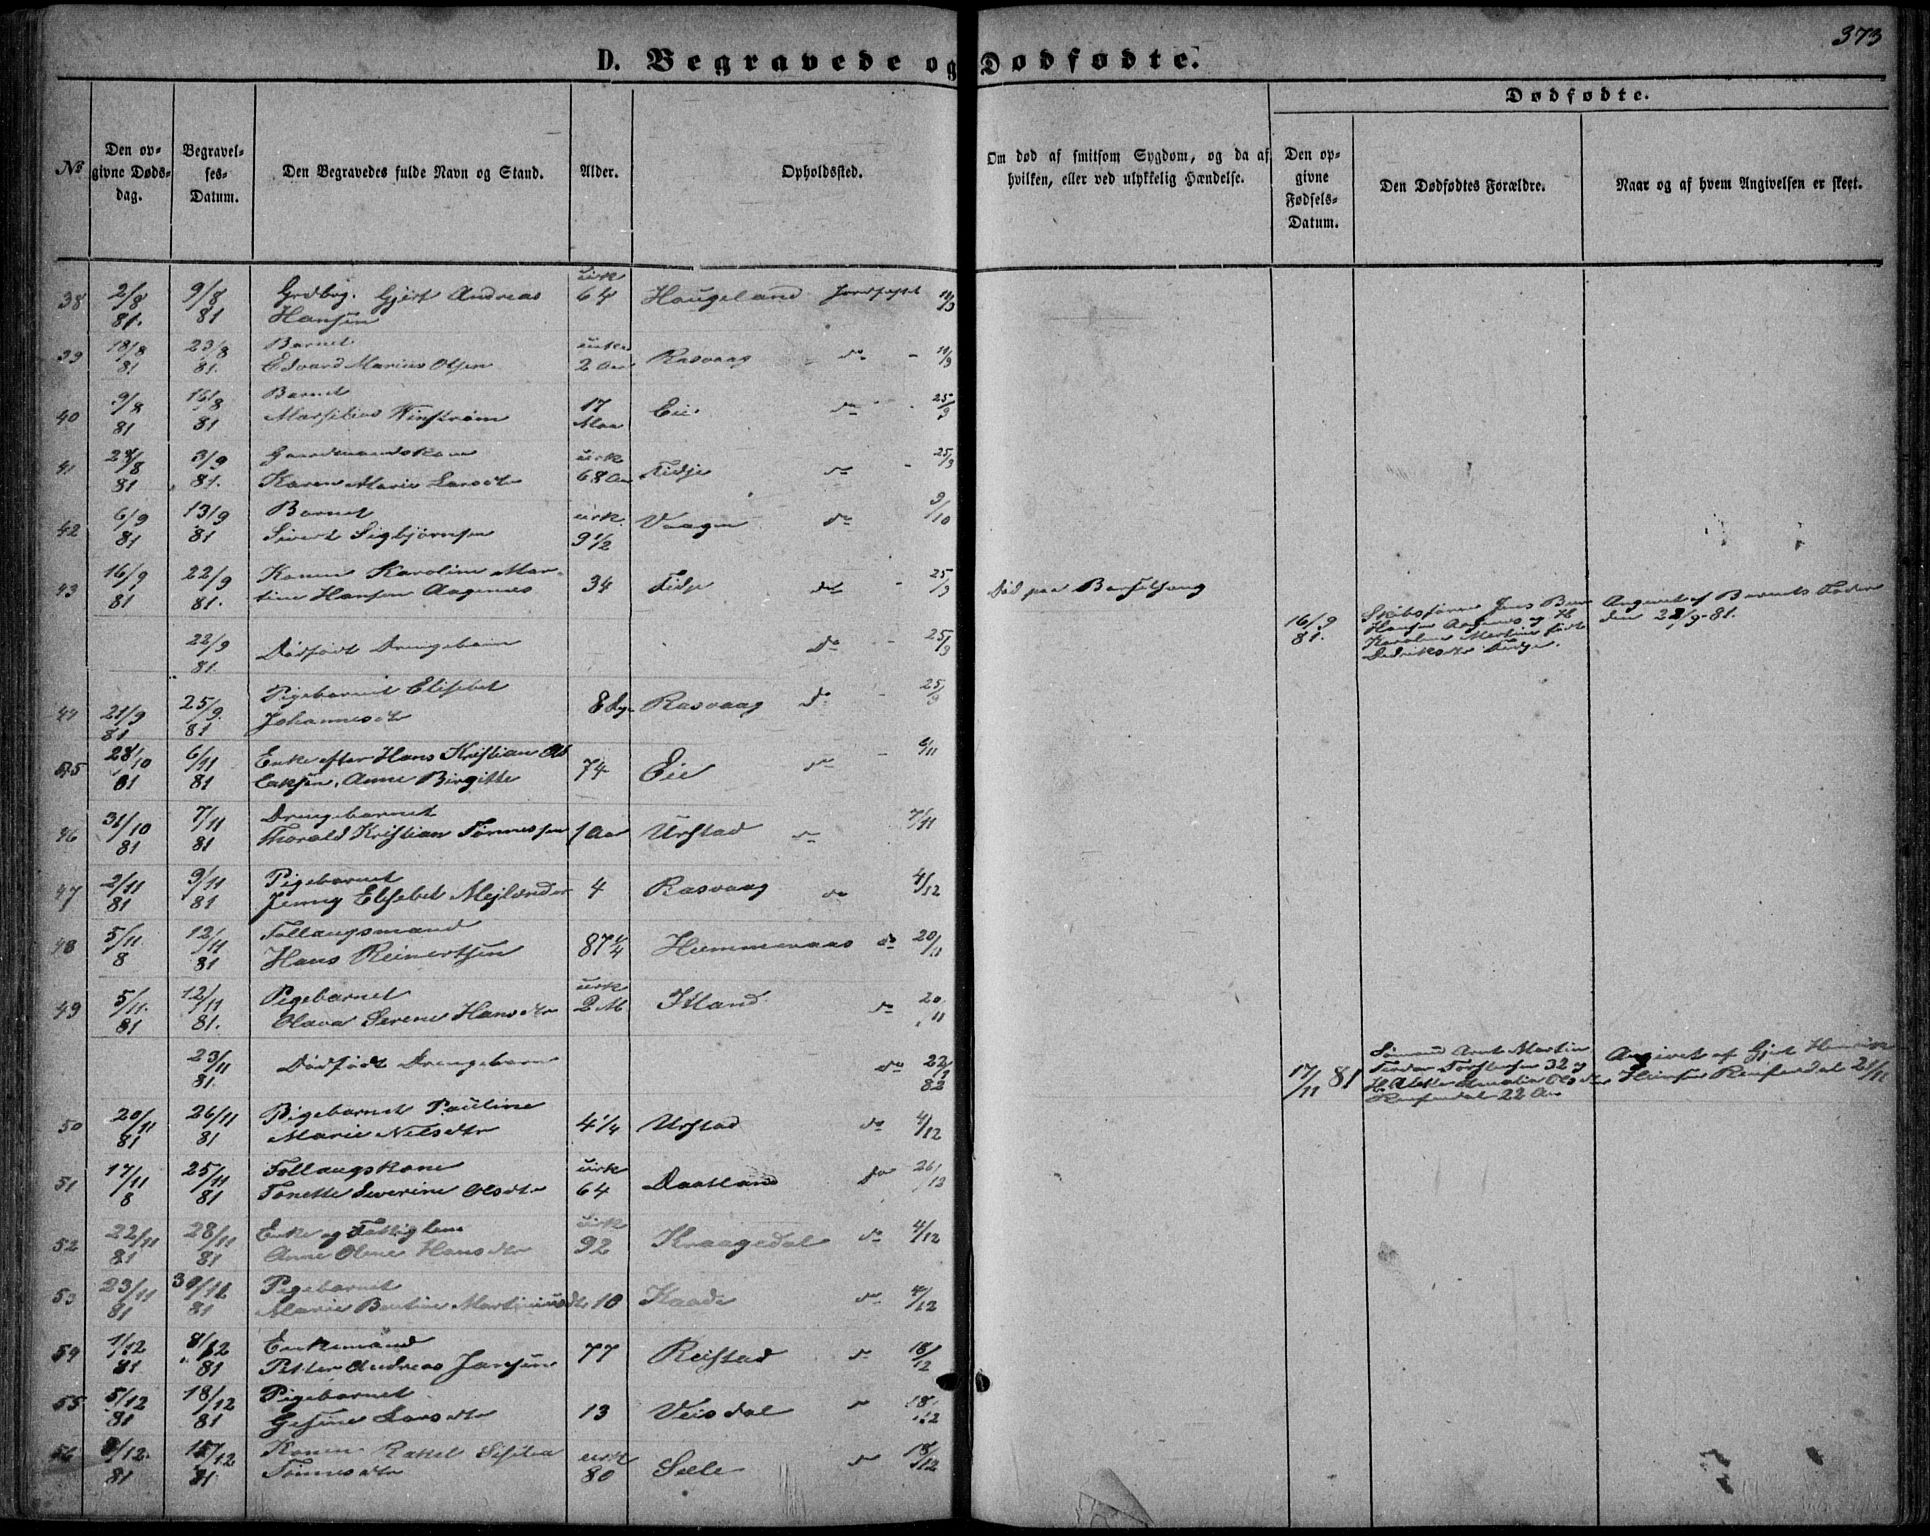 373
D. Begravede og Dødfødte.
Dødfødte.
No
Den op-
givne Døds-
dag.
Begravel-
ses-
Datum.
Den Begravedes fulde Navn og Stand.
Alder.
Opholdssted.
Om død af smitsom Sygdom, og da af
hvilken, eller ved ulykkelig Hændelse.
Den op-
givne
Fødsels-
Datum.
Den Dødfødtes Forældre.
Naar og af hvem Angivelsen er skeet.
38 2/8 81. 9/8 81 Grdbrg. Gjert Andreas
Hansen 64 Haugeland Jordfestet
39 18/8 81 23/8 81. Barnet
Edvard Marius Olsen 2 Aar Rasvaag do
40 9/8 81 16/8 81 Barnet
Marselius Winstrøm 17 Eie do 25/9
41 81 3/9 81. Gaardmandskone
Karen Marie Larsdtr 68 Aar Fidje do 25/9
42 6/9 81 13/9 81 Barnet
Sivert Sigbjørnsen 9 1/2 Vaagen do 9/10
43 16/9 81 22/9 81. Konen Karoline Mar-
tine Hansen Aagenes 34 Fidje do 25/9 Død paa Barselseng
22/9 81. Dødfødt Drengebarn do 25/9
16/9 81. Skibsfører Jens
Hansen Aagenes og H
Karoline Martine født
Didriksdtr Fidje.
Angivet af Barnets Fader
den 22/9-81.
44 21/9 81 25/9 81 Pigebarnet Elisebet
Johannesdtr 8 Rasvaag do 25/9
45 28/10 81 6/11 81 Enke efter Hans Kristian
Anne Birgitte 74 Eie do 6/11
46 31/10 81 7/11 81 Drengebarnet
Thorald Kristian Tønnessen 1 Aar Urstad do 7/11
47 2/11 81 9/11 81 Pigebarnet
Jenny Elisebet Mejlænder 4 Rasvaag do 4/12
48 5/11 8 12/11 81 Follaugsmand
Hans Reinertsen 87 1/4 Hummervaag do 20/11
49 5/11. 81 12/11 81. Pigebarnet
Olava Serene Hansdtr 2 M Itland do 20/11
23/11 81. Dødfødt Drengebarn do 82
17/11 81 Sømand Arnt Martin
32
22 Aar
Angivet af Gjert Henrik
21/11
50 20/11 81 26/11 81 Pigebarnet Pauline
Marie Nelsdtr 4 1/4 Urstad do 4/12
51 17/11 8 25/11 81 Follaugskone
Tonette Severine Olsdtr 64 Daatland do 26/12
52 22/11 81 28/11 81 Enke og Fattiglem
Anne Olene Hansdtr 92 Kraagedal do 4/12
53 23/11 81 30/11 81 Pigebarnet
Marie Bentine Martiniusdtr 10 Kaade do 4/12
54 1/12 81 8/12 81 Enkemand
Petter Andreas Jansen 77 Reistad do 18/12
55 5/12 81 18/12 81 Pigebarnet
Gesine Larsdtr 13 Veisdal do 18/12
56 81 15/12 81 Konen Rakel
Tønnesdtr 80 Sele do 18/12